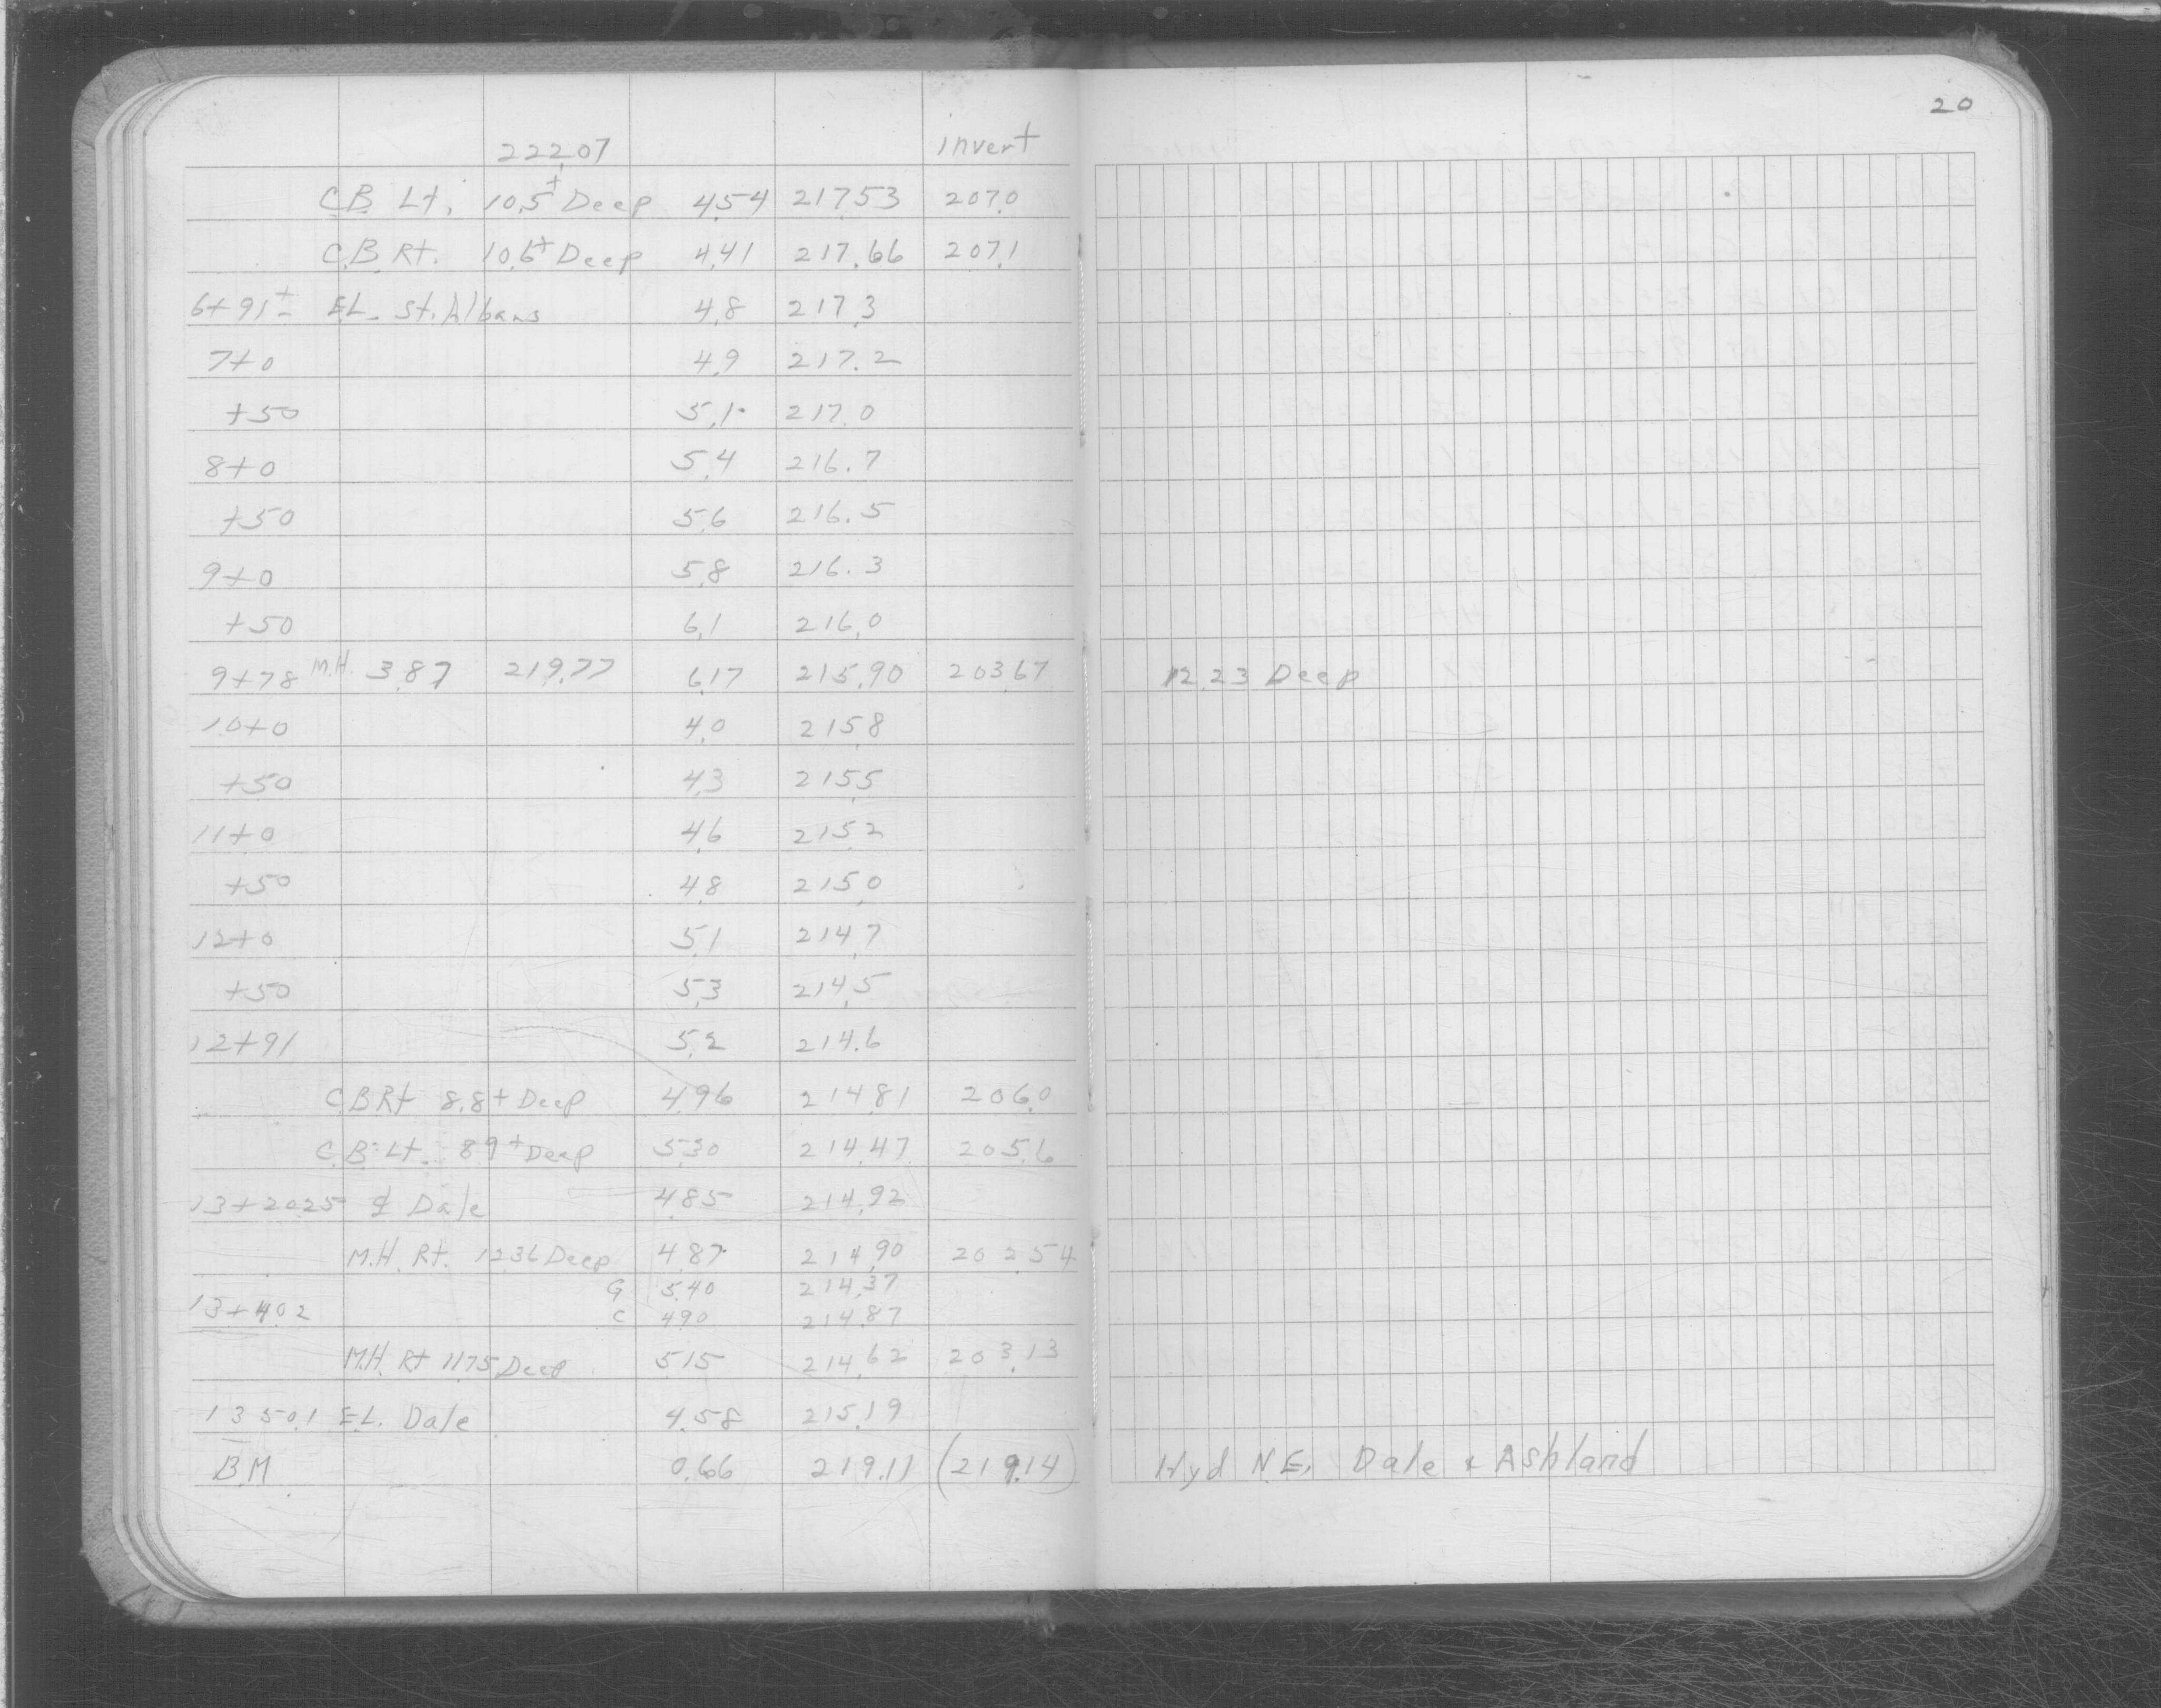 20
222.07 invert
C.B. Lt. 10.5± Deep 4.54 217.53 207.0
C.B. Rt. 10.6± Deep 4.41 217.66 207.1
6+91± E.L. St. Albans 4.8 217.3
7+0 4.9 217.2
+50 5.1 217.0
8+0 5.4 216.7
+50 5.6 216.5
9+0 5.8 216.3
+50 6.1 216.0
9+78 M.H. 3.87 219.77 6.17 215.90 203.67 12.23 Deep
10+0 4.0 215.8
+50 4.3 215.5
11+0 4.6 215.2
+50 4.8 215.0
12+0 5.1 214.7
+50 5.3 214.5
12+91 5.2 214.6
C.B. Rt 8.8± Deep 4.96 214.81 206.0
C.B. Lt. 8.9± Deep 5.30 214.47 205.6
13+20.25 ₵ Dale 4.85 214.92
M.H. Rt. 12.36 Deep 4.87 214.90 202.54
G 5.40 214.37
13+40.2 C 4.90 214.87
M.H. Rt 11.75 Deep 5.15 214.62 203.13
13 50.1 E.L. Dale 4.58 215.19
BM 0.66 219.11 (219.14) Hyd N.E. Dale & Ashland